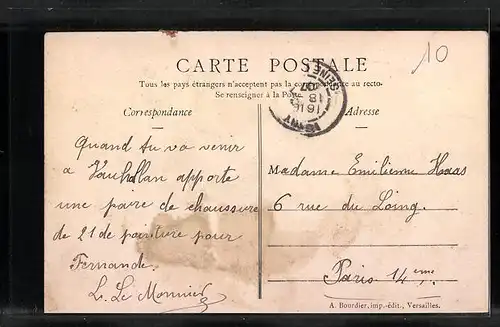 10
CARTE POSTALE
Tous les pays étrangers n'acceptent pas la correspondance au recto-
Se renseigner à la Poste.
Correspondance
Adresse
Quand tu va venir
a Vauhallan apporte
une paire de chaussure
de 21 de pointure pour
Fernande.
L. Le Monnier
Madame Emilienne Haas
6 rue du Loing.
Paris 14eme.
A. Bourdier, imp.-édit., Versailles.